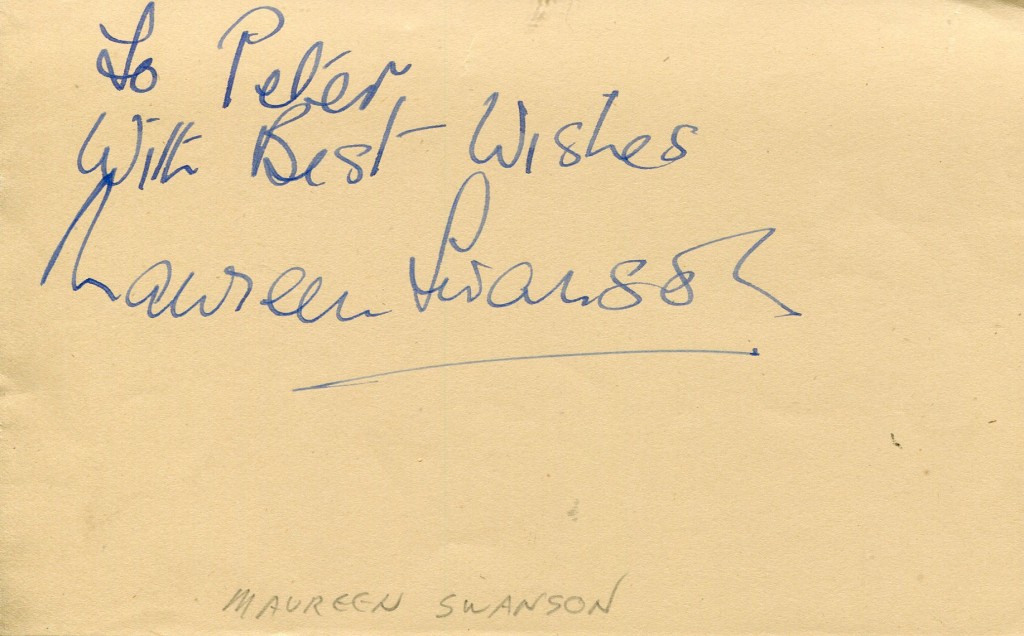 To Peter,
With Best Wishes
Maureen Swanson
MAUREEN SWANSON